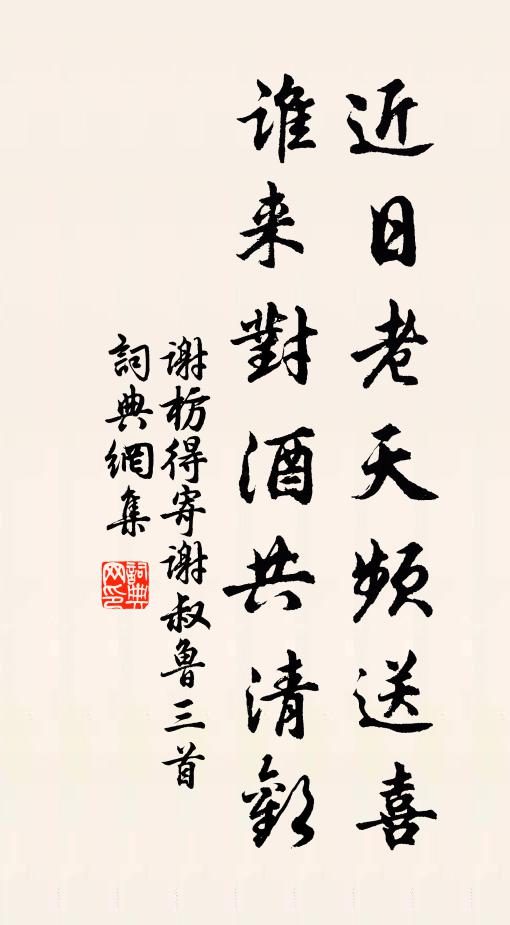 近日老天頻送喜
谁来對酒共清歡
谢枋得寄谢叔魯三首
詞典網集
詞典网印